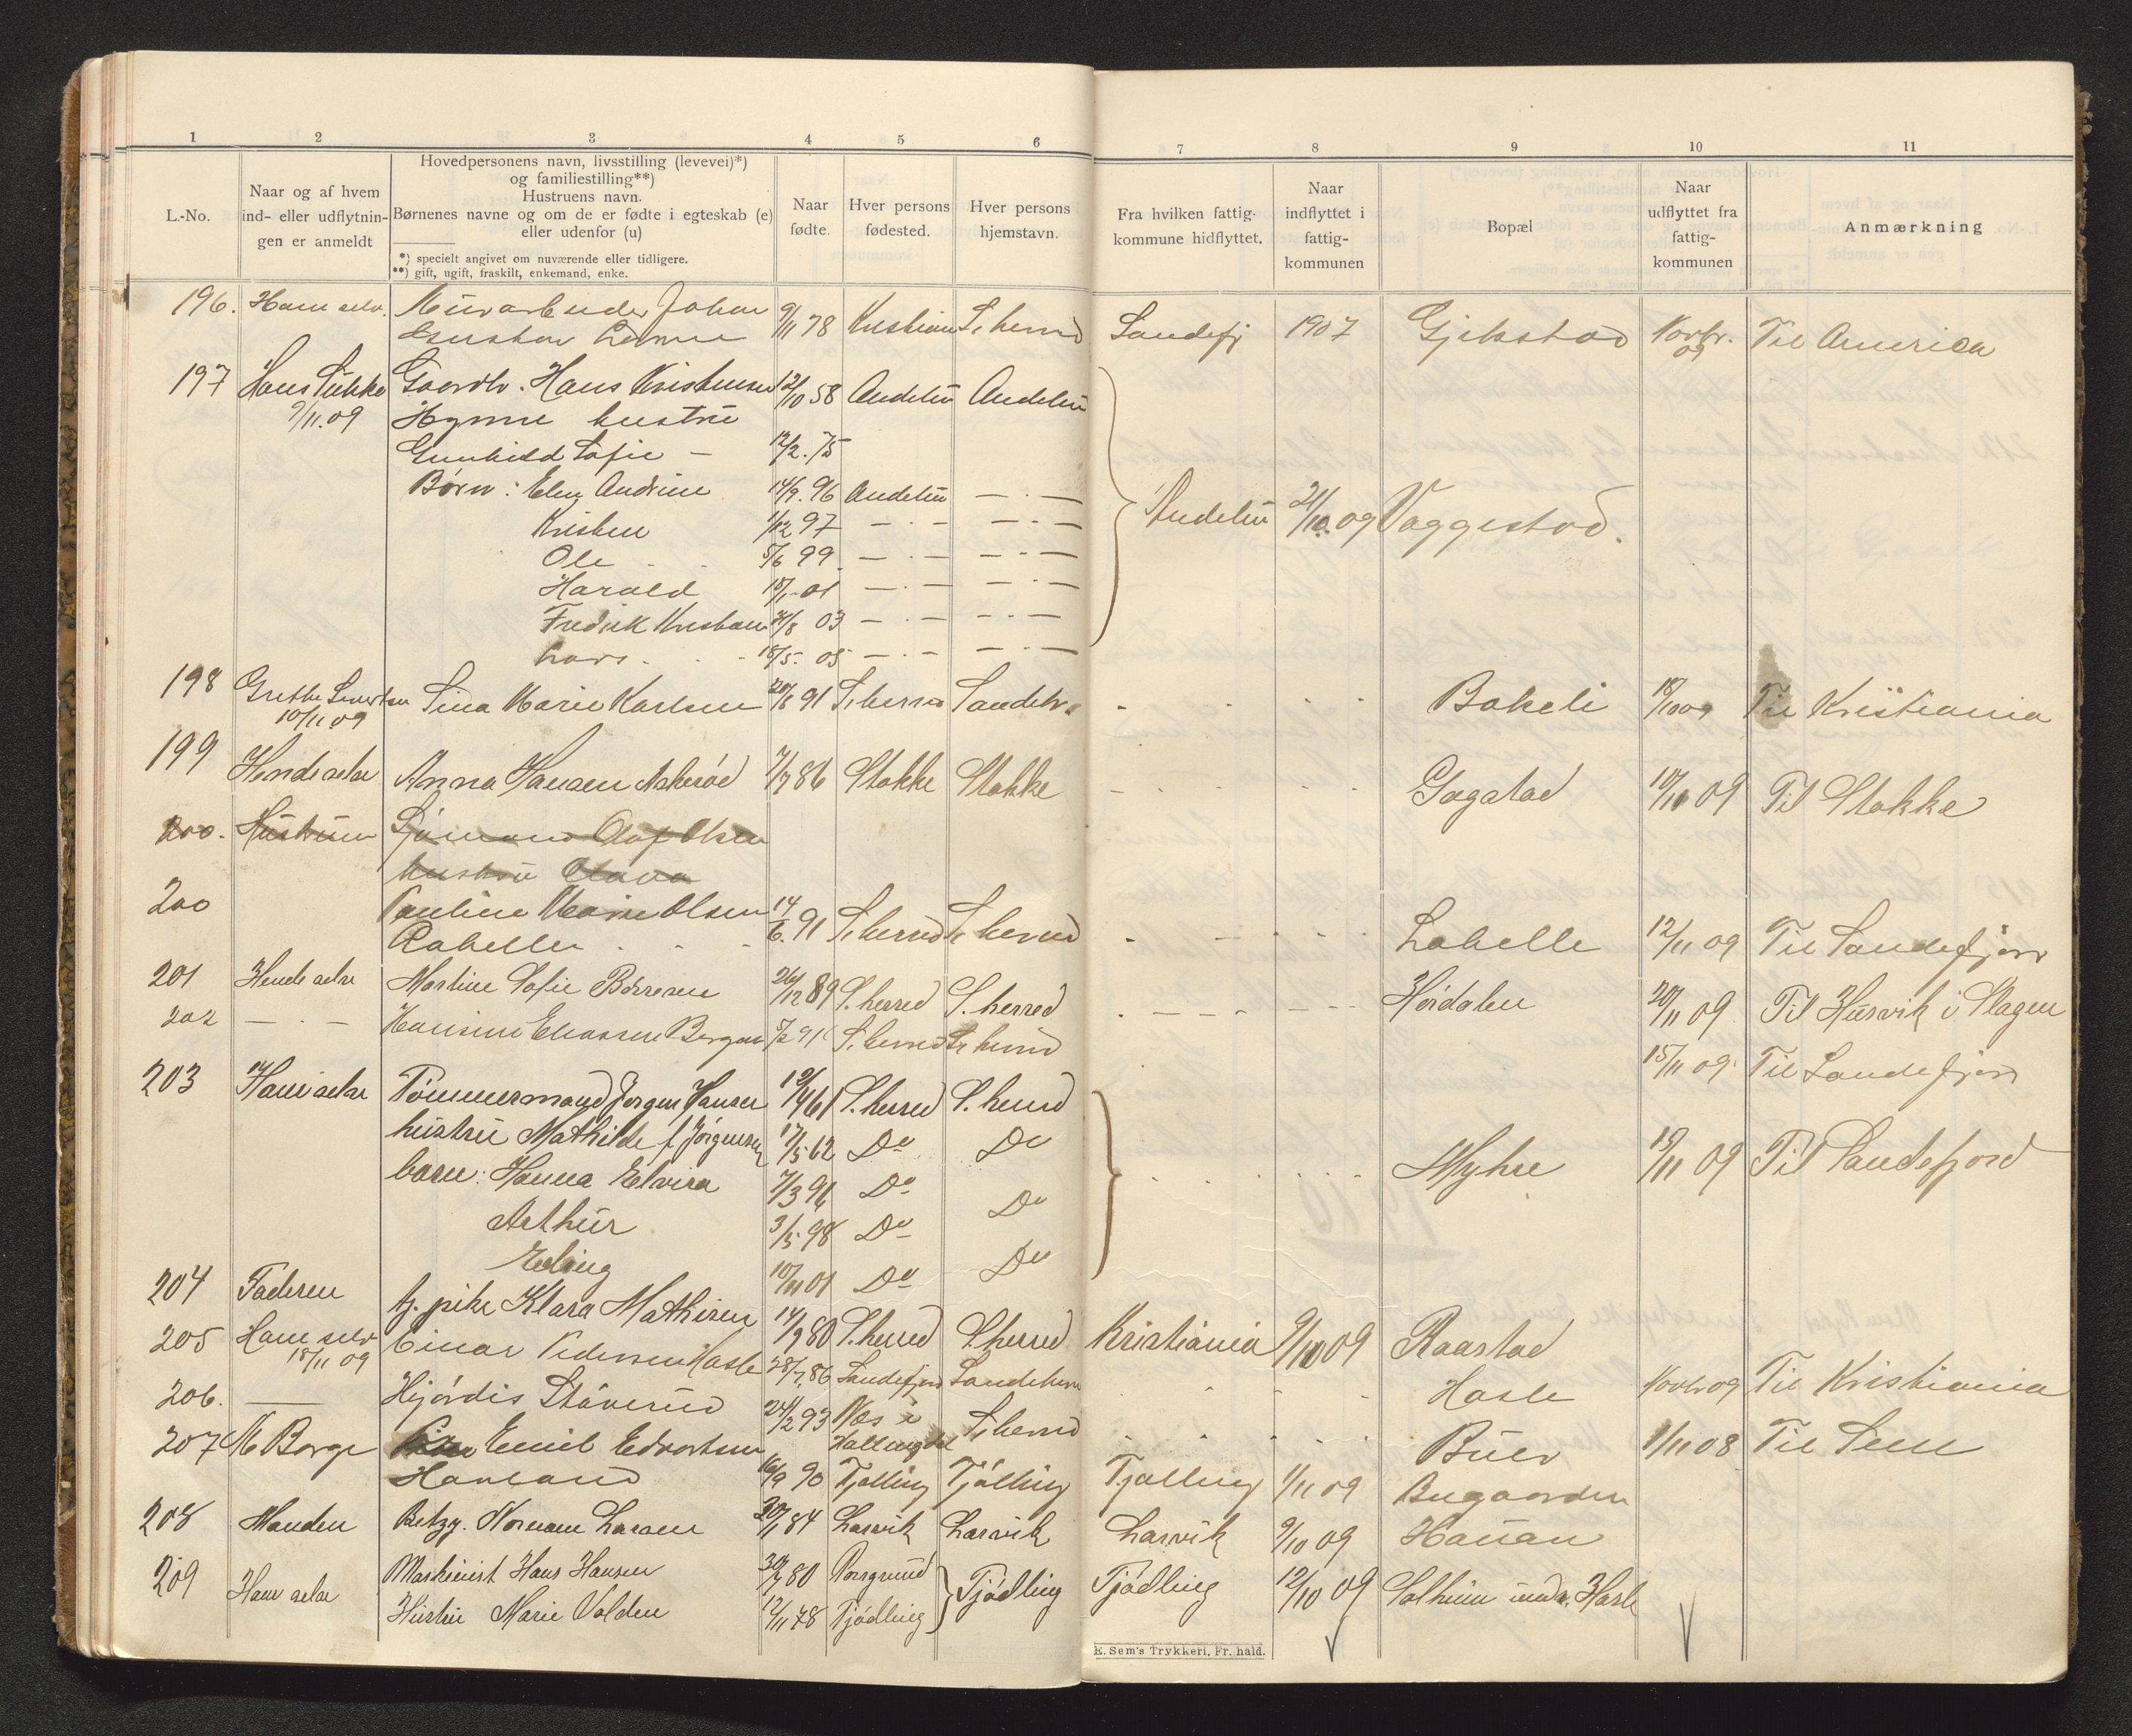 1 2 3 4 5 6 7 8 9 10 11
L.-No.
Naar og af hvem
ind- eller udflytnin-
gen er anmeldt
Hovedpersonens navn, livsstilling (levevei)*)
og familiestilling**)
Hustruens navn.
Børnenes navne og om de er fødte i egteskab (e)
eller udenfor (u)
*) specielt angivet om nuværende eller tidligere.
**) gift, ugift, fraskilt, enkemand, enke.
Naar
fødte.
Hver persons
fødested.
Hver persons
hjemstavn.
Fra hvilken fattig-
kommune hidflyttet.
Naar
indflyttet i
fattig-
kommunen
Bopæl
Naar
udflyttet fra
fattig-
kommunen
Anmærkning
196. Ham selv. Murarbeider Johan 9/11 78 Kristiania S. herred Sandefj 1907 Gjekstad Novbr. 09 Til America
Gustav
197 Hans Gaardbr. Hans Kristensen 12/10 58 Andebu Andebu
9/11.09 hustru
Gunhild Sofie – 12/2.75
Børn: Andrine 14/9.96 Andebu — . — Andebu 21/10.09 Vaggestad.
Kristen 1/12 97 — . — — . —
Ole 5/6 99 — . — — . —
Harald 18/1-01 — . — — . —
Fredrik Kristian 21/8 03 — . — — . —
Lars 18/5. 05 — . — — . —
198 Grethe Sina Marie Karlsen 20/8 91 S. herred Sandehr. Bakeli 18/10 09 Til Kristiania
10/11 09
199 Hende selv Anna Hansen Askerød 7/7 86 Stokke Stokke Gogstad 10/11 09 Til Stokke
200. Hustruen Sjømand Olaf Olsen
hustru Olava
200 Pauline Marie Olsen 14/6. 91 S. herred S. herred Labelle 12/11 09 Til Sandefjord
201 Hende selv Martine Sofie Børresen 26/12 89 S. herred S. herred Høidalen 20/11 09 Til Husvik i Slagen
202 — . — Hansine Eliassen Bergan 5/2 91 S. herred S. herred 15/11 09. Til Sandefjord
203 Ham selv Tømmermand Jørgen Hansen 19/4 61 S. herred S. herred
hustru Mathilde f. Jörgensen 17/5 62 Do Do Myhre 19/11 09 Til Sandefjord
barn: Hanna Elvira 7/3 96 Do
Arthur 3/5 98 Do Do
Erling 10/11 01 Do Do
204 Faderen tj. pike Klara Mathisen 14/9 80 S. herred S. herred Kristiania 9/10 09 Raastad
205 Ham selv Einar Pedersen Hasle 28/7 86 Sandefjord Sandeherre Hasle Novbr 09 Til Kristiania
18/11 09
206. — Hjördis Stöverud 24/2 93 Næs i S. herred Buer 1/11 08 Til Sem
Hallingdal
207 M Berge Emil Edvartsen
Havland 16/9 90 Tjølling Tjølling Tjølling 1/11 09 Bugaarden
208 Manden Betzy. Normann Larsen 20/1 84 Larvik Larvik Larvik 9/10 09 Hauan
209 Ham selv Maskinist Hans Hansen 30/7 80 Porsgrund Tjödling Tjödling 12/10 09 Solheim Hasle
Hustru Marie Volden 12/11 78 Tjödling
E. Sem's Trykkeri, Fr. hald.